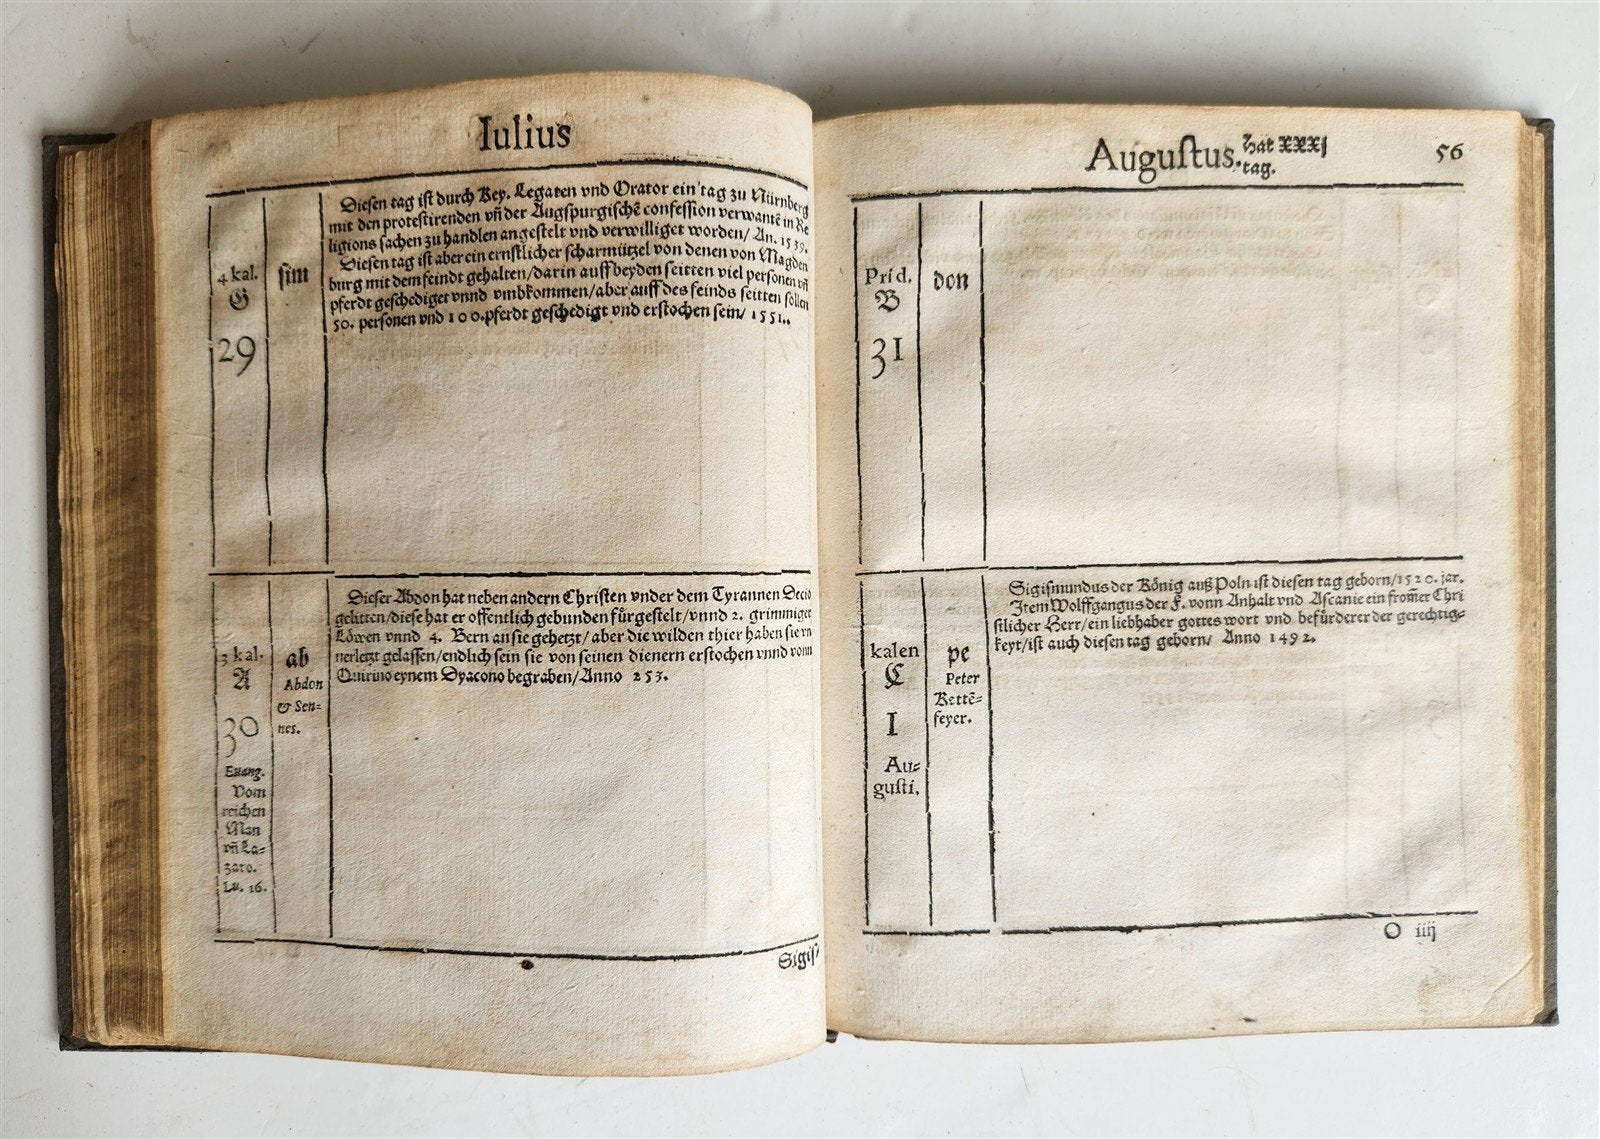 Iulius
4 kal.
G
29
sim
Diesen tag ist durch Key. Legaten vnd Orator ein tag zu Nürnberg
mit den protestirenden vñ der Augspurgischẽ confession verwantẽ in Re
ligions sachen zu handlen angestelt vnd verwilliget worden/ An. 1539.
Diesen tag ist aber ein ernstlicher scharmützel von denen von Magden
burg mit dem feindt gehalten/darin auff beyden seitten viel personen vñ
pferdt geschediget vnnd vmbkommen/aber auff des feinds seitten sollen
50. personen vnd 100. pferdt geschedigt vnd erstochen sein/ 1551.
3 kal.
A
30
Euang.
Vom
reichen
Man
vñ La=
zaro.
Lu. 16.
ab
Abdon
& Sen=
nes.
Dieser Abdon hat neben andern Christen vnder dem Tyrannen Decio
gelitten/diese hat er offentlich gebunden fürgestelt/vnnd 2. grimmiger
Löwen vnnd 4. Bern an sie gehetzt/aber die wilden thier haben sie vn
uerletzt gelassen/endlich sein sie von seinen dienern erstochen vnnd vonn
Quirino eynem Dyacono begraben/Anno 253.
Sigis=
Augustus. hat XXXj
tag.
56
Prid.
B
31
don
kalen
C
1
Au=
gusti.
pe
Peter
Kettẽ=
feyer.
Sigismundus der König auß Poln ist diesen tag geborn/1520. jar.
Item Wolffgangus der F. vonn Anhalt vnd Ascanie ein from̃er Chri
stlicher Herr/ein liebhaber gottes wort vnd befürderer der gerechtig=
keyt/ist auch diesen tag geborn/ Anno 1492.
O iiij